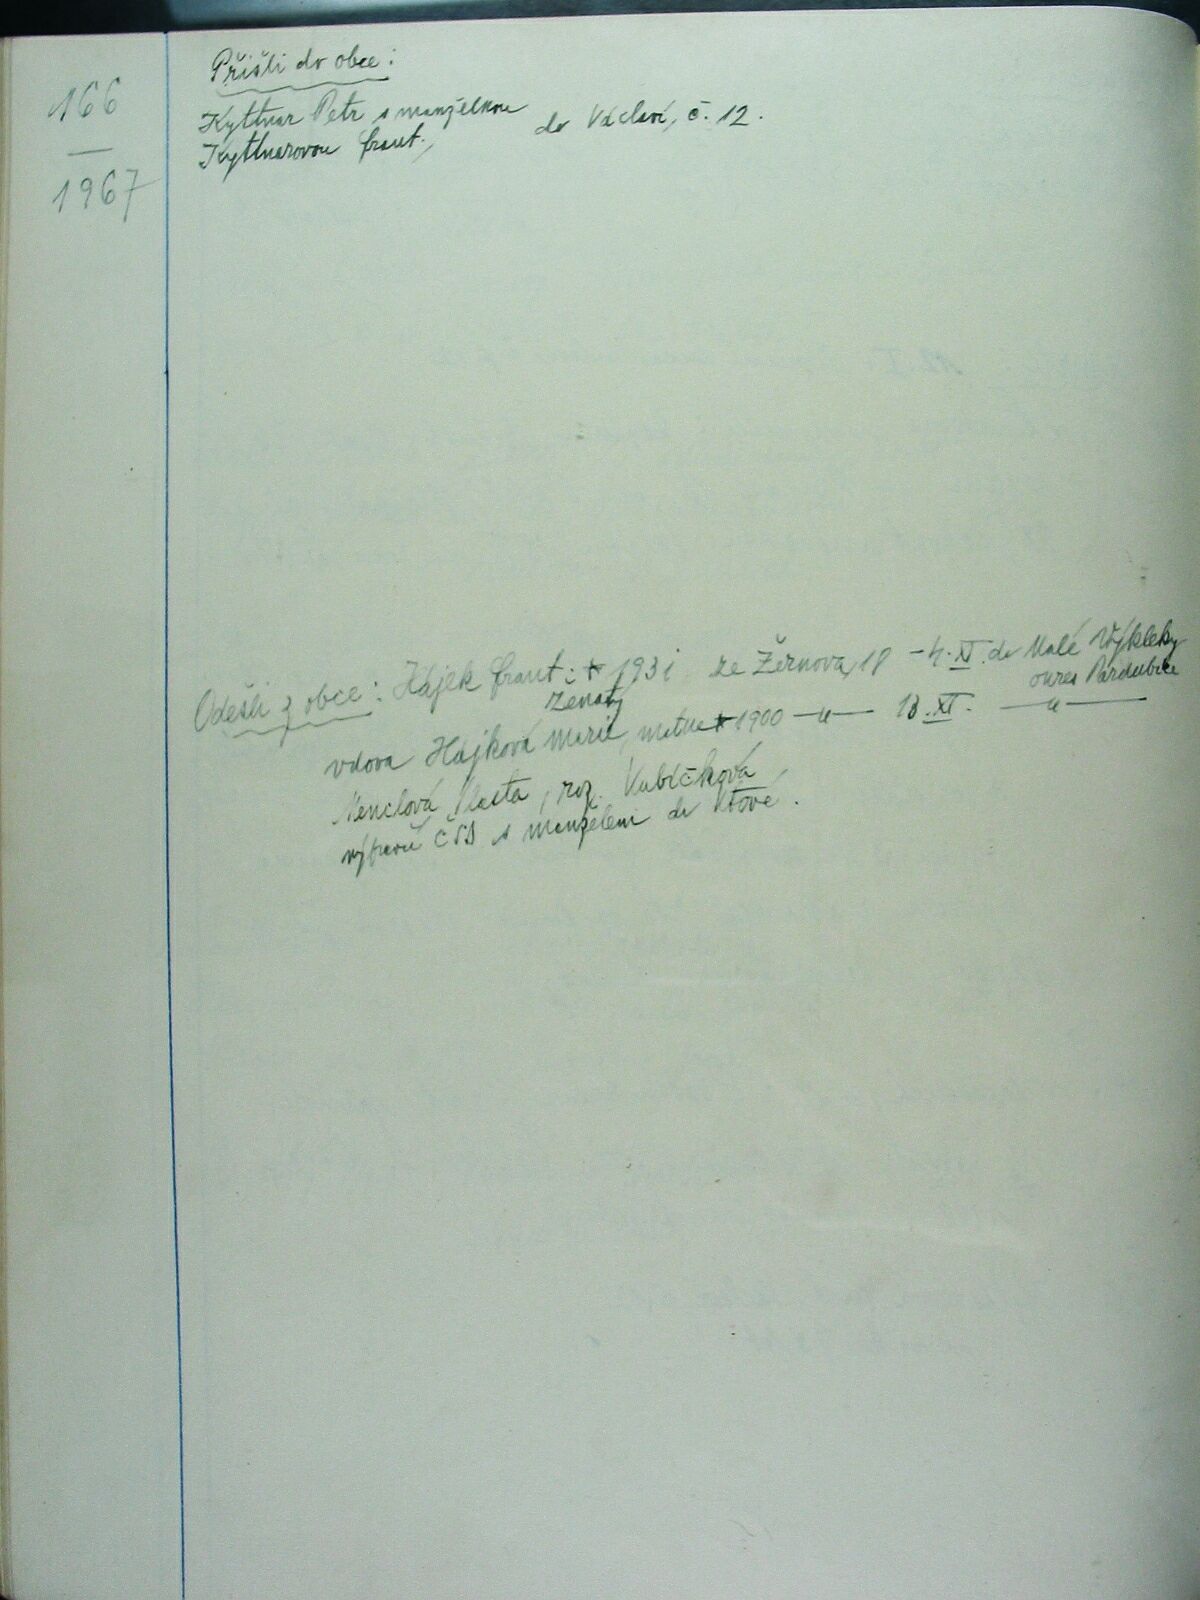 166
1967
Přišli do obce:
Kyttnar Petr s manželkou
Kyttnarovou frant., do Václaví, č. 12.
Odešli z obce: Hájek frant: * 1931 ze Žernova, 18 - 4. XI. do Malé Výkleky
ženatý okres Pardubice
vdova Hájková Marie, matka * 1900 —„— 18. XI. —„—
Menclová Vlasta, roz. Kubíčková
výpravčí ČSD s manželem do Ktové.